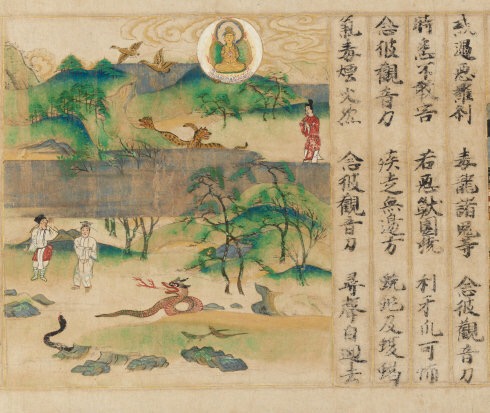 或遇惡羅刹 毒龍諸鬼等 念彼觀音力
時悉不敢害 若惡獸圍繞 利牙爪可怖
念彼觀音力 疾走無邊方 蚖蛇及蝮蠍
氣毒煙火然 念彼觀音力 尋聲自迴去